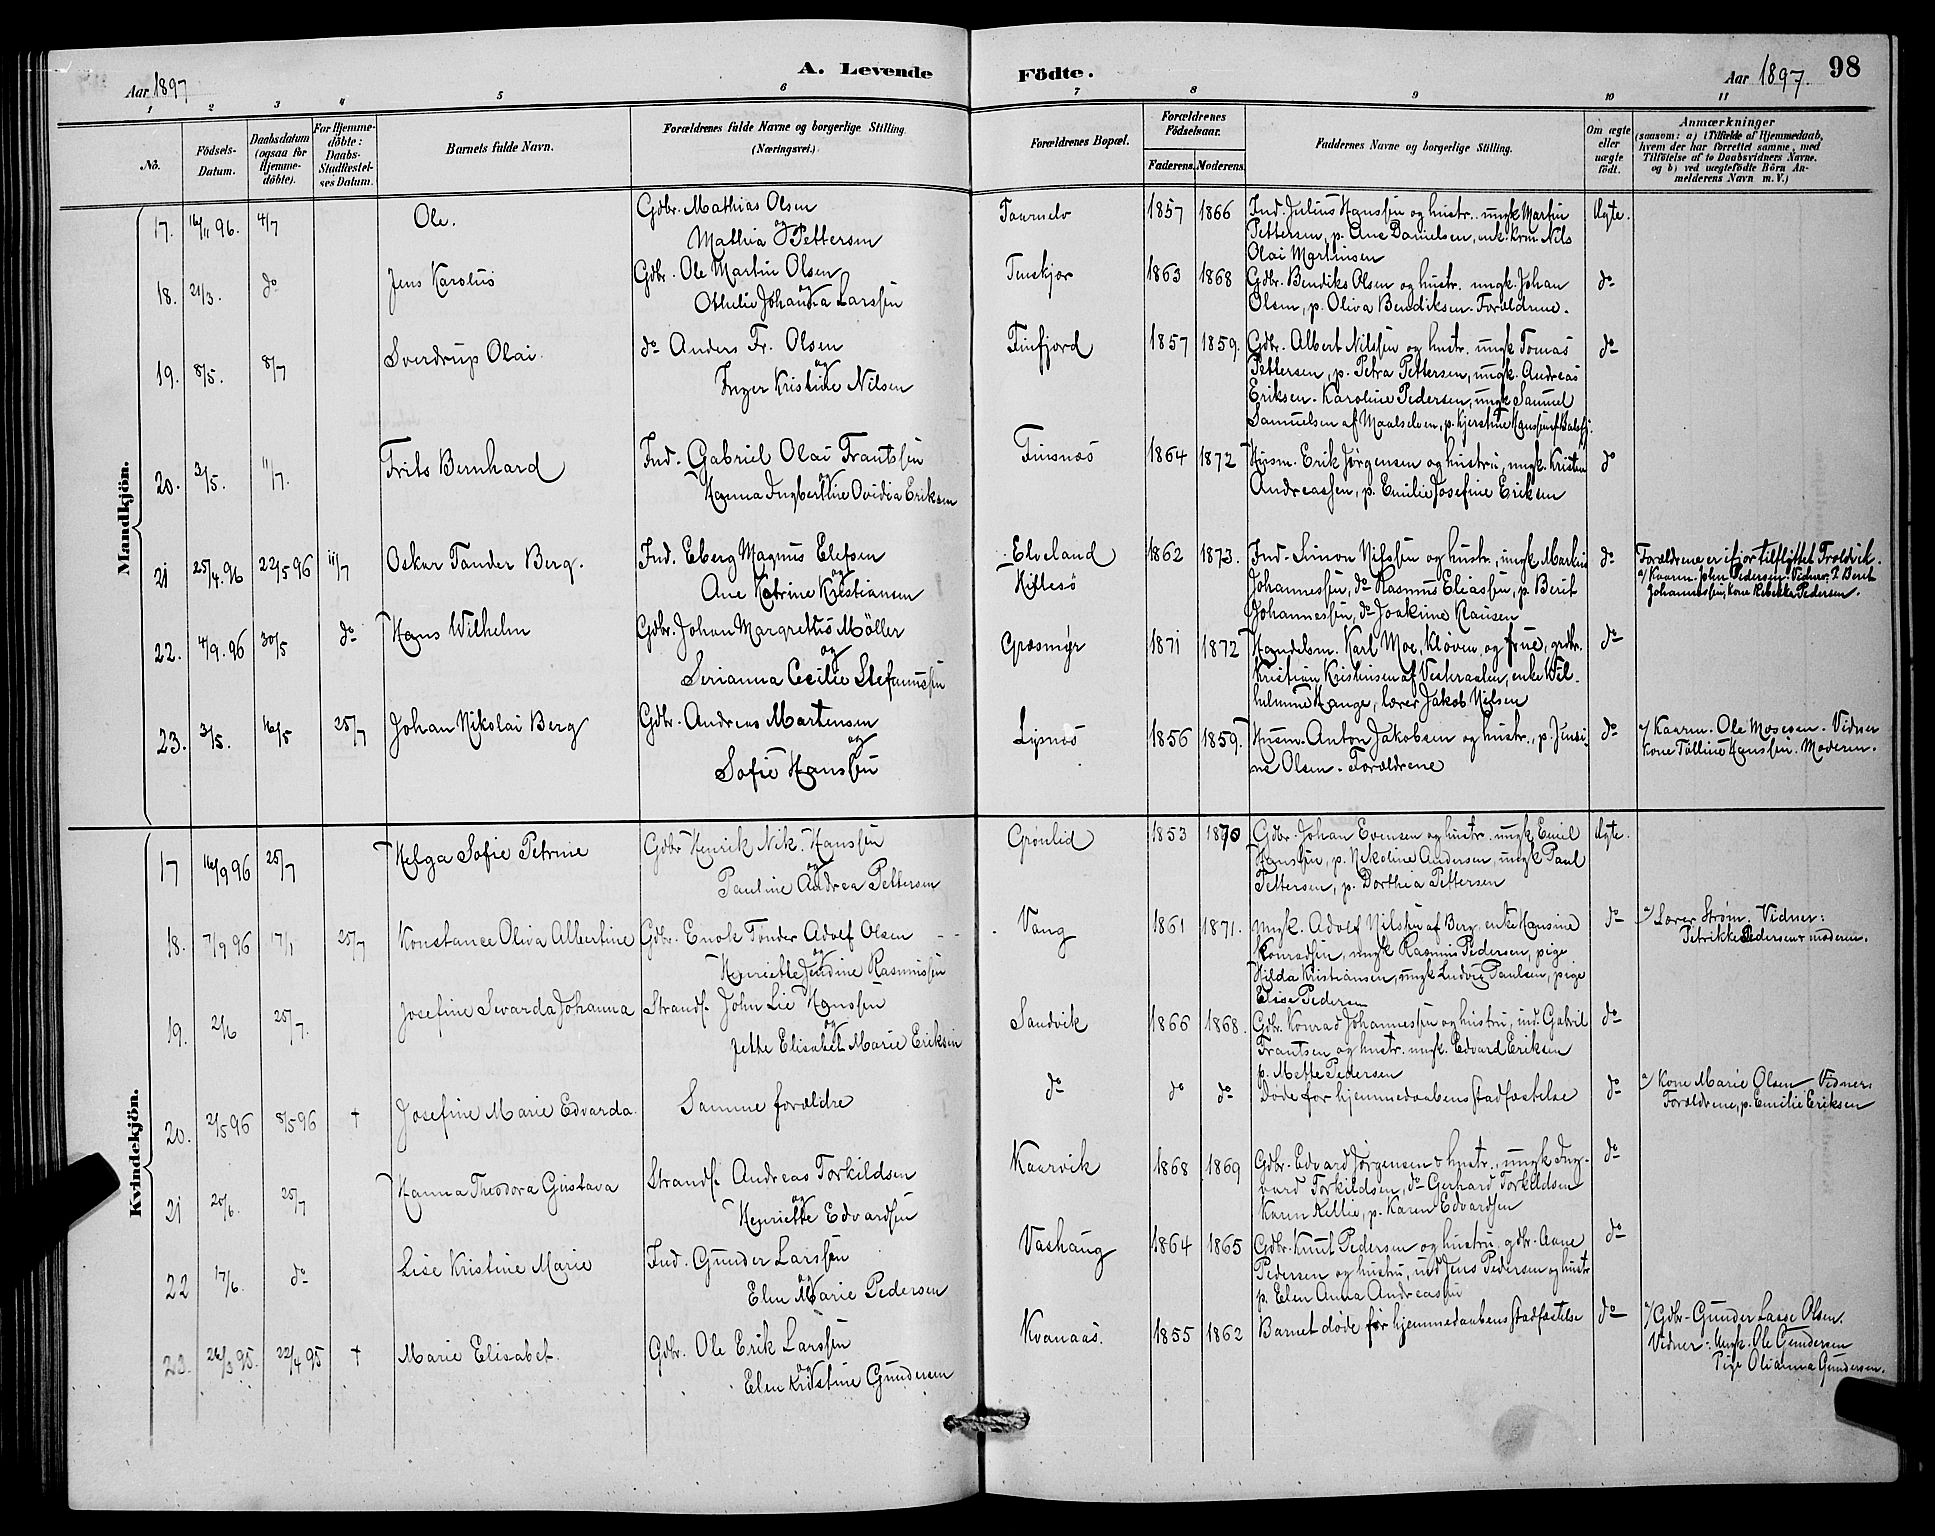 A. Levende Födte.
Aar 1897
Aar 1897. 98
1 2 3 4 5 6 7 8 9 10 11
No.
Födsels-Datum.
Daabsdatum (ogsaa for Hjemme-döbte).
For Hjemme-döbte: Daabs-Stadfæstel-ses Datum.
Barnets fulde Navn.
Forældrenes fulde Navne og borgerlige Stilling. (Næringsvei.)
Forældrenes Bopæl.
Forældrenes Födselsaar.
Faderens. Moderens.
Faddernes Navne og borgerlige Stilling.
Om ægte eller uægte födt.
Anmærkninger
(saasom: a) i Tilfælde af Hjemmedaab,
hvem der har forrettet samme, med
Tilföielse af to Daabsvidners Navne.
og b) ved uægtefödte Börn An-
melderens Navn m. V.)
Mandkjön.
17. 16/11 96. 4/7 Ole. Gdbr. Mathias Olsen
og
Mathia Pettersen
Taarnelv 1857 1866 Ind. Julius Hanssen og hustr. ungk Martin
Pettersen, p. Ane Danielsen, enk. krm. Nils
Olai Martinsen
Ægte.
18. 21/3. do Jens Karolus Gdbr. Ole Martin Olsen
og
Othelie Johanna Larssen
Tenskjær 1863 1868 Gdbr. Bendiks Olsen og hustr. ungk. Johan
Olsen, p. Oliva Bendiksen. Forældrene.
do
19. 8/5. 8/7 Sverdrup Olai. do Anders Fr. Olsen
og
Inger Kristine Nilsen
Finfjord 1857 1859. Gdbr. Albert Nilssen og hustr. ungk Tomas
Pettersen, p. Petra Pettersen, ungk. Andreas
Eriksen. Karoline Pedersen, ungk Samuel
Samuelsen af Maalselven, p. Kjerstine Hanssen af Balsfj.
do
20. 2/5. 11/7. Frits Bernhard Ind. Gabriel Olai Frantssen
og
Hanna Ingbertine Ovidia Eriksen
Finsnæs 1864 1872 Husm. Erik Jørgensen og hustru, ungk. Kristen
Andreassen, p. Emilie Josefine Eriksen
do
21 25/4.96 22/5 96 11/7 Oskar Tander Berg. Ind. Eberg Magnus Elefsen
og
Ane Katrine Kristiansen
Elveland
Hillesö
1862 1873. Ind. Simon Nilssen og hustr., ungk. Martin
Johannessen, do Rasmus Eliassen, p. Berit
Johannessen, do Joakime Klausen
do Forældrene er ifjor tilflyttet Troldvik.
a/ Kaarm. John Pedersen. Vidner: P. Berit
Johannessen, kone Rebekka Pedersen.
22. 4/9.96 30/5 do Hans Wilhelm Gdbr. Johan Margrethus Möller
og
Serianna Cecilie Stefanussen
Græsmyr 1871 1872 Handelsm. Karl Moe, Kløven, og frue, gdbr.
Kristian Kristensen af Vesteraalen, enke Wil-
helmine Hange, lærer Jakob Nilsen
do
23. 3/5. 16/5 25/7 Johan Nikolai Berg Gdbr. Andreas Martensen
og
Sofie Hanssen
Lysnæs 1856 1859. Husm. Anton Jakobsen og hustr., p. Jensi-
ne Olsen. Forældrene
do a/ Kaarm. Ole Mosesen. Vidner
kone Talline Hanssen. Moderen.
Kvindekjön.
17 16/9 96 25/7 Helga Sofie Petrine Gdbr Henrik Nik. Hanssen
og
Pauline Andrea Pettersen
Grønlid 1853 1870 Gdbr. Johan Evensen og hustr. ungk Emil
Hanssen, p. Nikoline Andersen, ungk Paul
Pettersen, p. Dorthia Pettersen
Ægte.
18. 7/9 96 17/1 25/7 Konstance Oliva Albertine Gdbr. Enok Tonder Adolf Olsen
og
Henriette Jendine Rasmussen
Vang 1861 1871. Ungk. Adolf Nilssen af Berg. enke Hansine
Konradsen, ungk Rasmus Pedersen, pige
Hilda Kristiansen, ungk Ludvig Paulsen, pige
Elise Pedersen
do a/ Lærer Strøm. Vidner:
Petrikke Pedersen & moderen.
19. 2/6 25/7. Josefine Sevarda Johanna Strands. John Lie Hanssen
og
Jethe Elisabet Marie Eriksen
Sandvik 1866 1868. Gdbr. Konrad Johannessen og hustru, ind. Gabriel
Frantsen og hustr. ungk. Edvard Eriksen
p. Mette Pedersen
do
20. 2/5 96 8/5 96 † Josefine Marie Edvarda. Samme forældre
do do do Døde før hjemmedaabens stadfæstelse do a/ Kone Marie Olsen Vidner.
Forældrene, p. Emilie Eriksen
21 20/6. 25/7 Hanna Theodora Gustava Strands. Andreas Torkildsen
og
Henriette Edvardsen
Kaarvik 1868 1869 Gdbr. Edvard Jørgensen & hustr., ungk Ing-
vard Torkildsen, do Gerhard Torkildsen
Karen Kellie, p. Karen Edvardsen
do
22 17/6. do Lise Kristine Marie Ind. Gunder Larssen
og
Elen Marie Pedersen
Vashaug 1864 1865 Gdbr. Knut Pedersen og hustru, gdbr. Aane
Pedersen og hustru, ind Jens Pedersen og hustr
p. Elen Anna Andreassen
do
23. 26/3 95. 22/4 95 † Marie Elisabet. Gdbr. Ole Erik Larssen
og
Elen Kristine Gundersen
Kvanaas. 1855 1862 Barnet døde før hjemmedaabens stadfæstelse do a/ Gdbr. Gunder Lasse Olsen.
Vidner: Ungk. Ole Gundersen
Pige Olianna Gundersen.